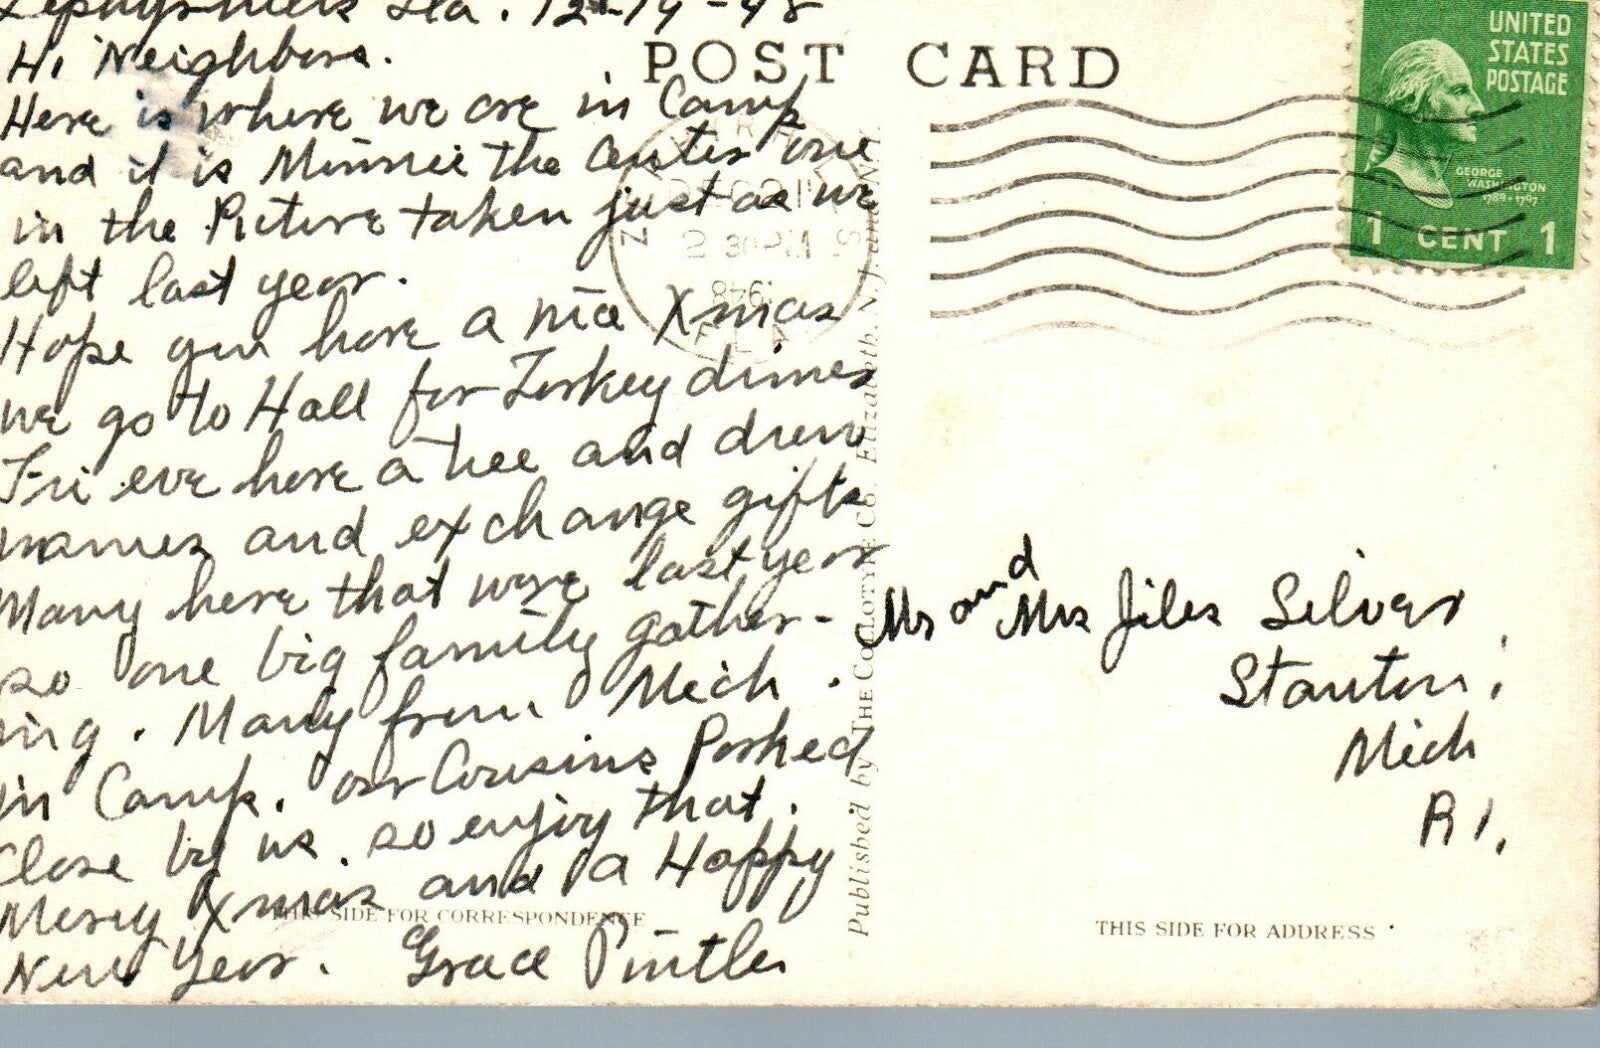 Zephyrhills Fla. 12-19-48
Hi Neighbors.
Here is where we are in Camp
and it is Minnie the Center one
in the Picture taken just as we
left last year.
Hope you have a nice Xmas
we go to Hall for Turkey dinner
Fri eve have a tree and drew
names and exchange gifts
Many here that were last year
so one big family gather-
ing. Many from Mich.
in Camp. our Cousins Parked
Close by us. so enjoy that.
Merry Xmas and a Happy
New Year. Grace Pintler
POST CARD
THIS SIDE FOR CORRESPONDENCE
Published by THE COLLOTYPE CO., Elizabeth, N. J. and N. Y.
ZEPHYRHILLS
DEC 21
2 30 PM
1948
FLA
UNITED
STATES
POSTAGE
GEORGE
WASHINGTON
1789-1797
1 CENT 1
Mr and Mrs Jiles Silver
Stanton,
Mich
R 1.
THIS SIDE FOR ADDRESS